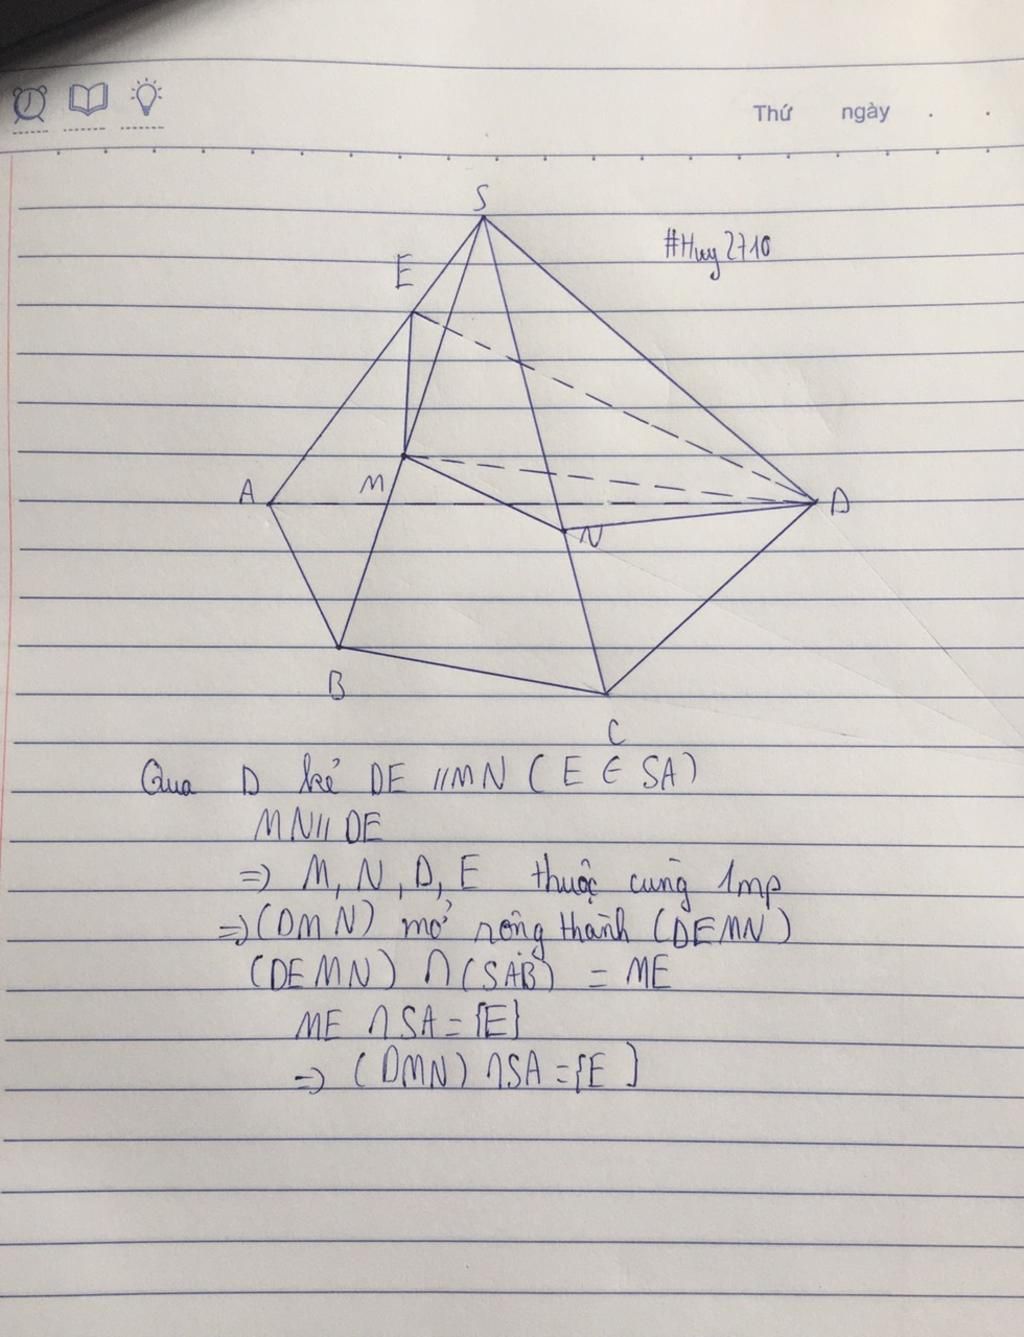 Thứ ngày
S
#Huy2710
E
A
M
D
N
B
C
Qua D kẻ DE //MN ( E ∈ SA)
MN// DE
=> M, N, D, E thuộc cùng 1mp
=> (DMN) mở rộng thành (DEMN)
(DEMN) ∩ (SAB) = ME
ME ∩ SA = {E}
=> (DMN) ∩ SA = {E }